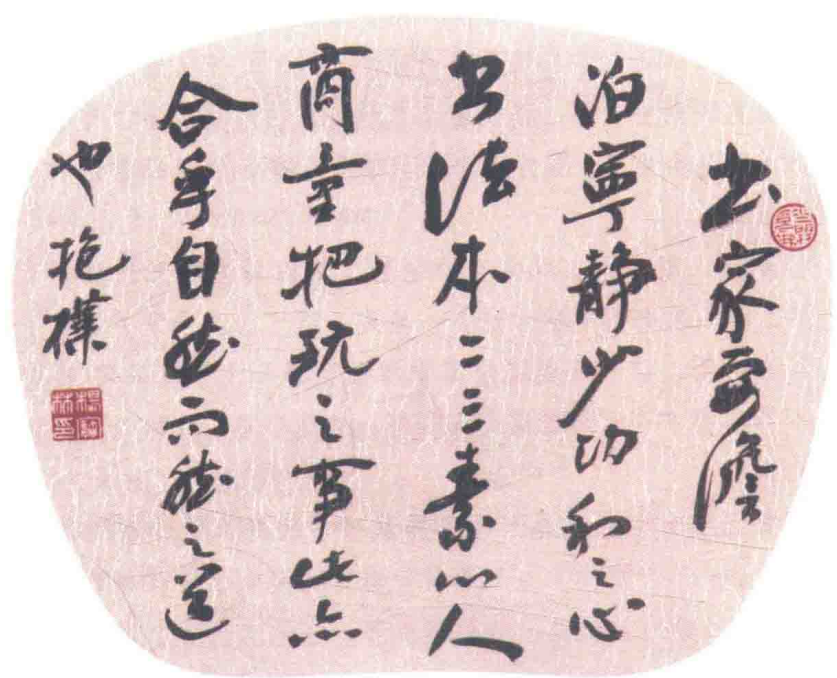 书家要澹
泊寧静少功利之心
书法本二三素心人
商量把玩之事此亦
合乎自然而然之道
也抱樸